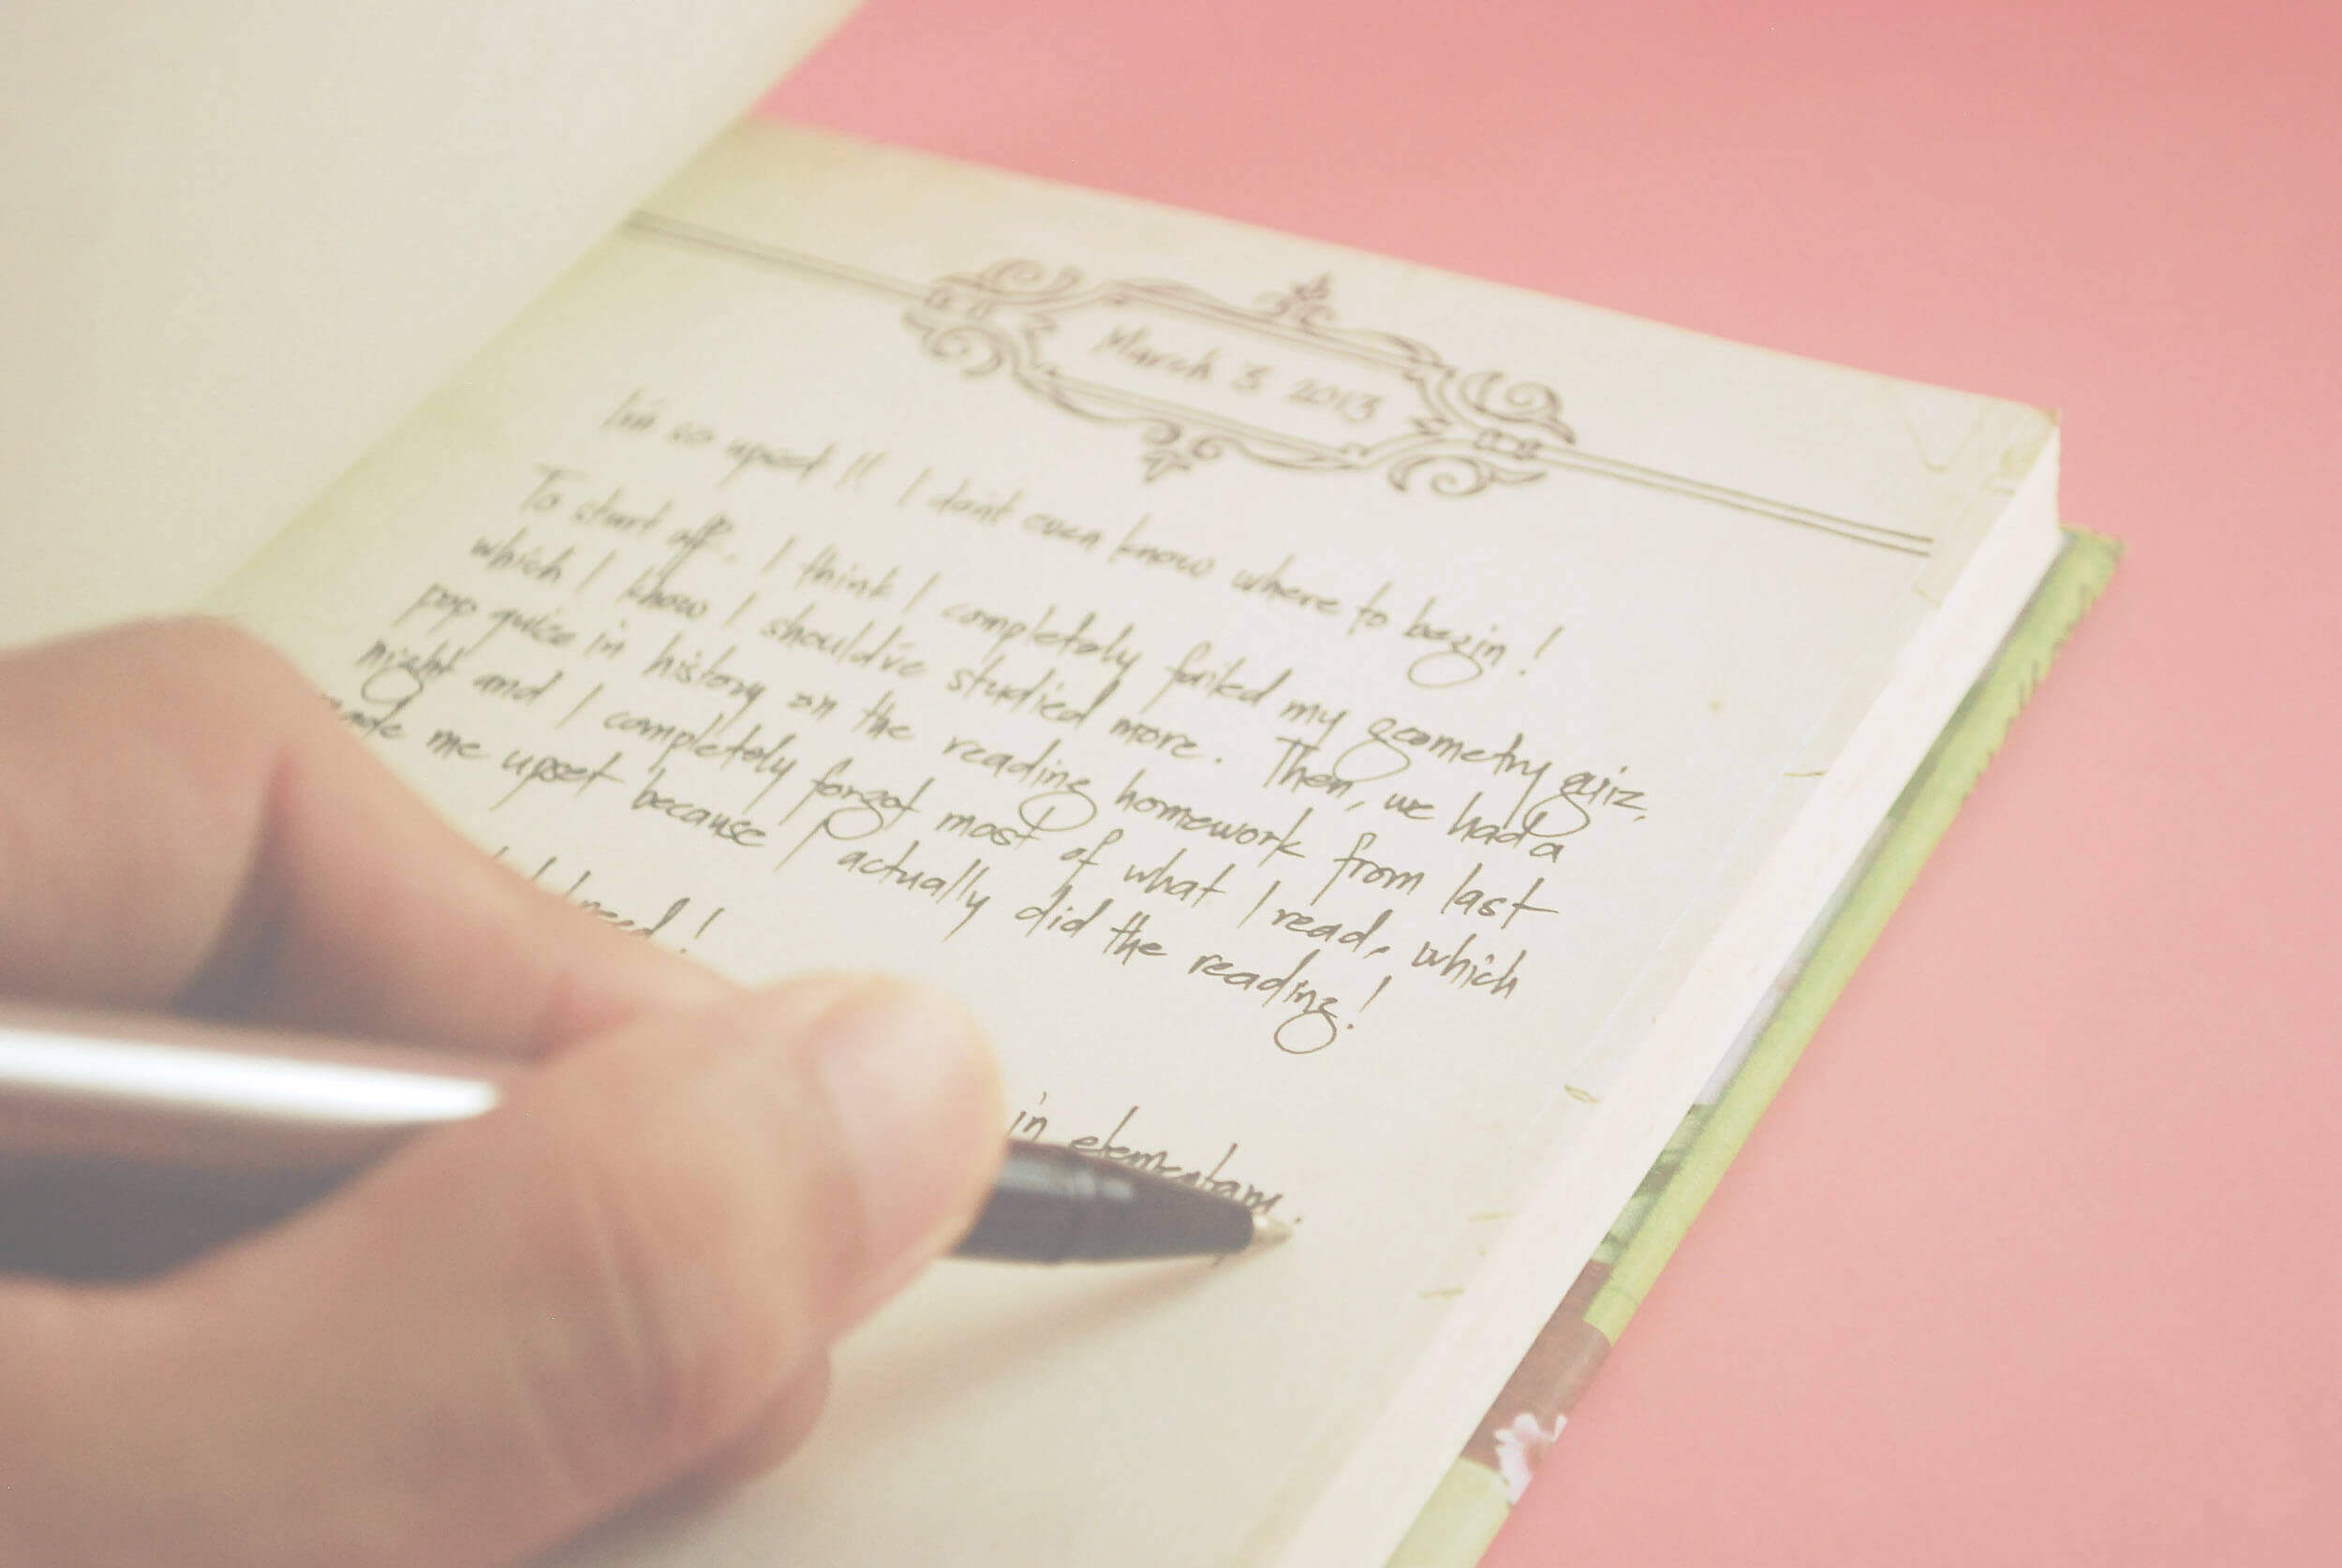 March 3 2013
I'm so upset !! I don't even know where to begin !
To start off, I think I completely failed my geometry quiz,
which I know I should've studied more. Then, we had a
pop quize in history on the reading homework from last
night and I completely forgot most of what I read, which
made me upset because I actually did the reading!
need!
in elementary.